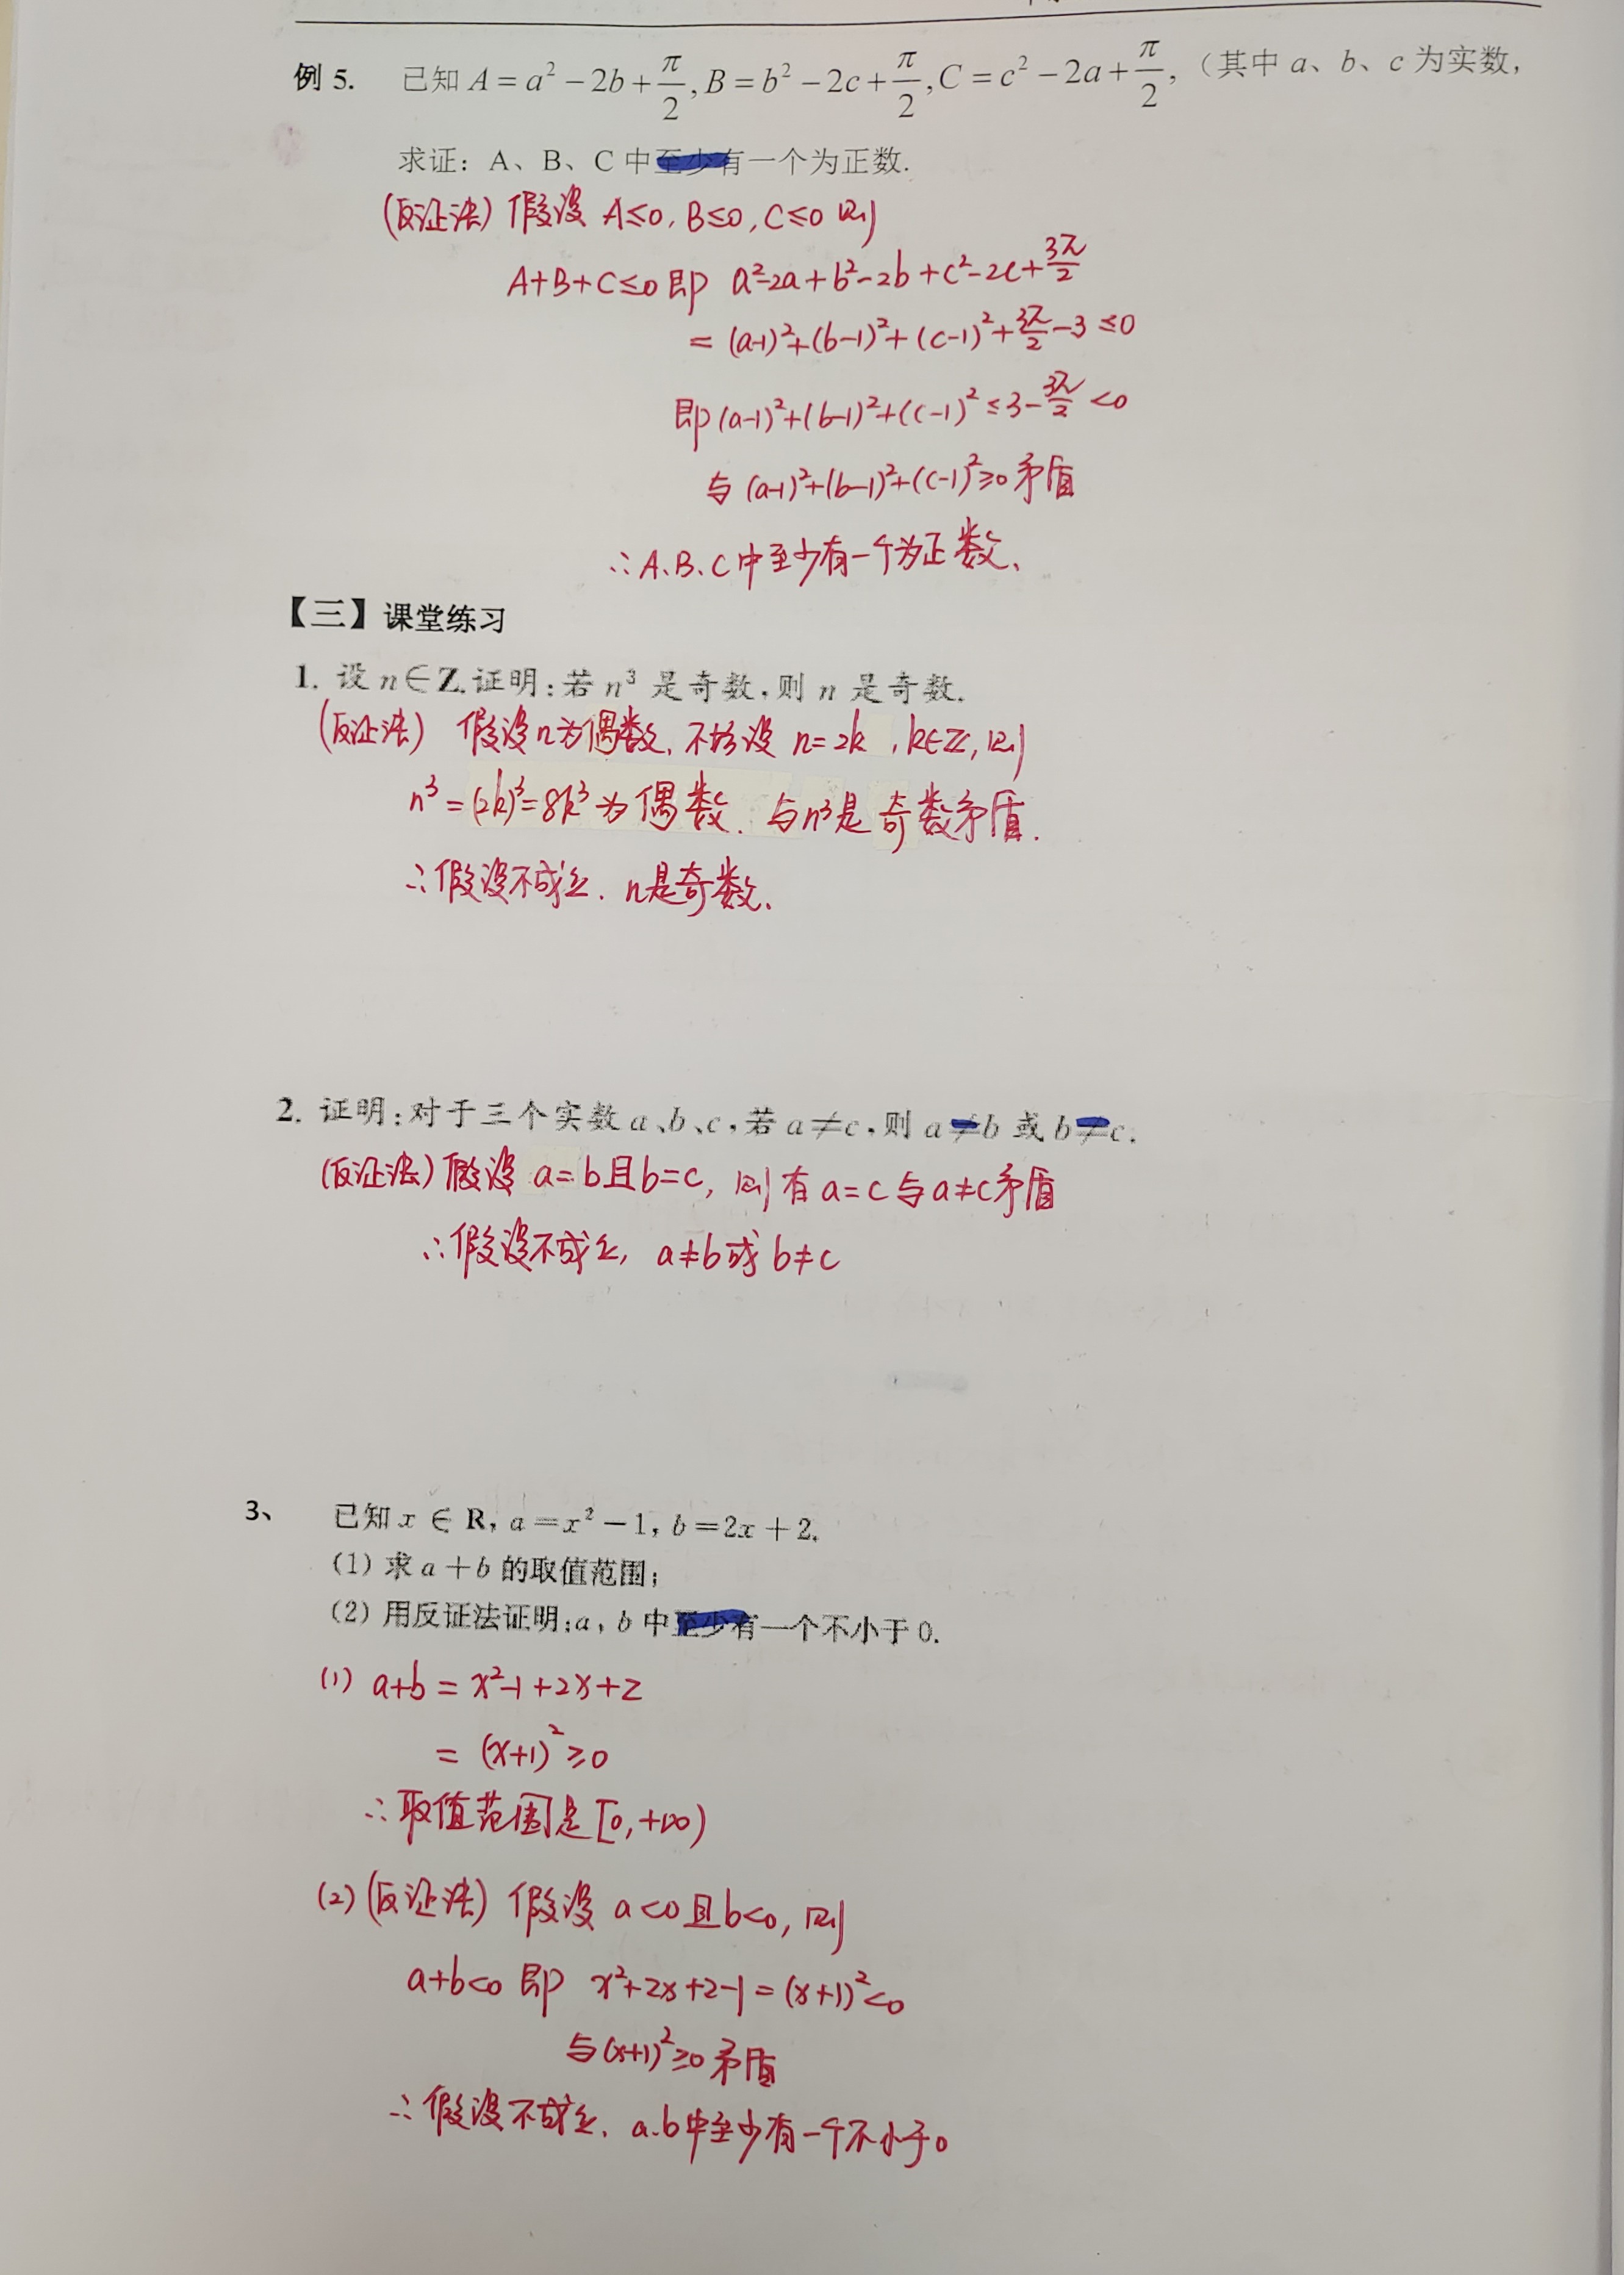 例 5. 已知 A = a² − 2b + π/2, B = b² − 2c + π/2, C = c² − 2a + π/2, （其中 a、b、c 为实数，
求证：A、B、C 中至少有一个为正数.
(反证法) 假设 A≤0, B≤0, C≤0 则
A+B+C≤0 即 a²-2a+b²-2b+c²-2c+3π/2
= (a-1)²+(b-1)²+(c-1)²+3π/2-3 ≤0
即 (a-1)²+(b-1)²+(c-1)² ≤ 3-3π/2 <0
与 (a-1)²+(b-1)²+(c-1)²≥0 矛盾
∴A、B、C中至少有一个为正数、
【三】课堂练习
1. 设 n∈Z.证明:若 n³ 是奇数,则 n 是奇数.
(反证法) 假设n为偶数、不妨设 n=2k , k∈Z, 则
n³=(2k)³=8k³为偶数、与n³是奇数矛盾.
∴假设不成立. n是奇数、
2. 证明:对于三个实数 a、b、c,若 a≠c,则 a≠b 或 b≠c.
(反证法) 假设 a=b且b=c, 则有 a=c与a≠c矛盾
∴假设不成立, a≠b或 b≠c
3、 已知 x ∈ R, a=x²−1, b=2x+2.
(1) 求 a+b 的取值范围;
(2) 用反证法证明:a, b 中至少有一个不小于 0.
(1) a+b = x²-1+2x+2
= (x+1)²≥0
∴取值范围是[0,+∞)
(2) (反证法) 假设 a<0且b<0, 则
a+b<0 即 x²+2x+2-1=(x+1)²<0
与(x+1)²≥0 矛盾
∴假设不成立、a、b中至少有一个不小于0